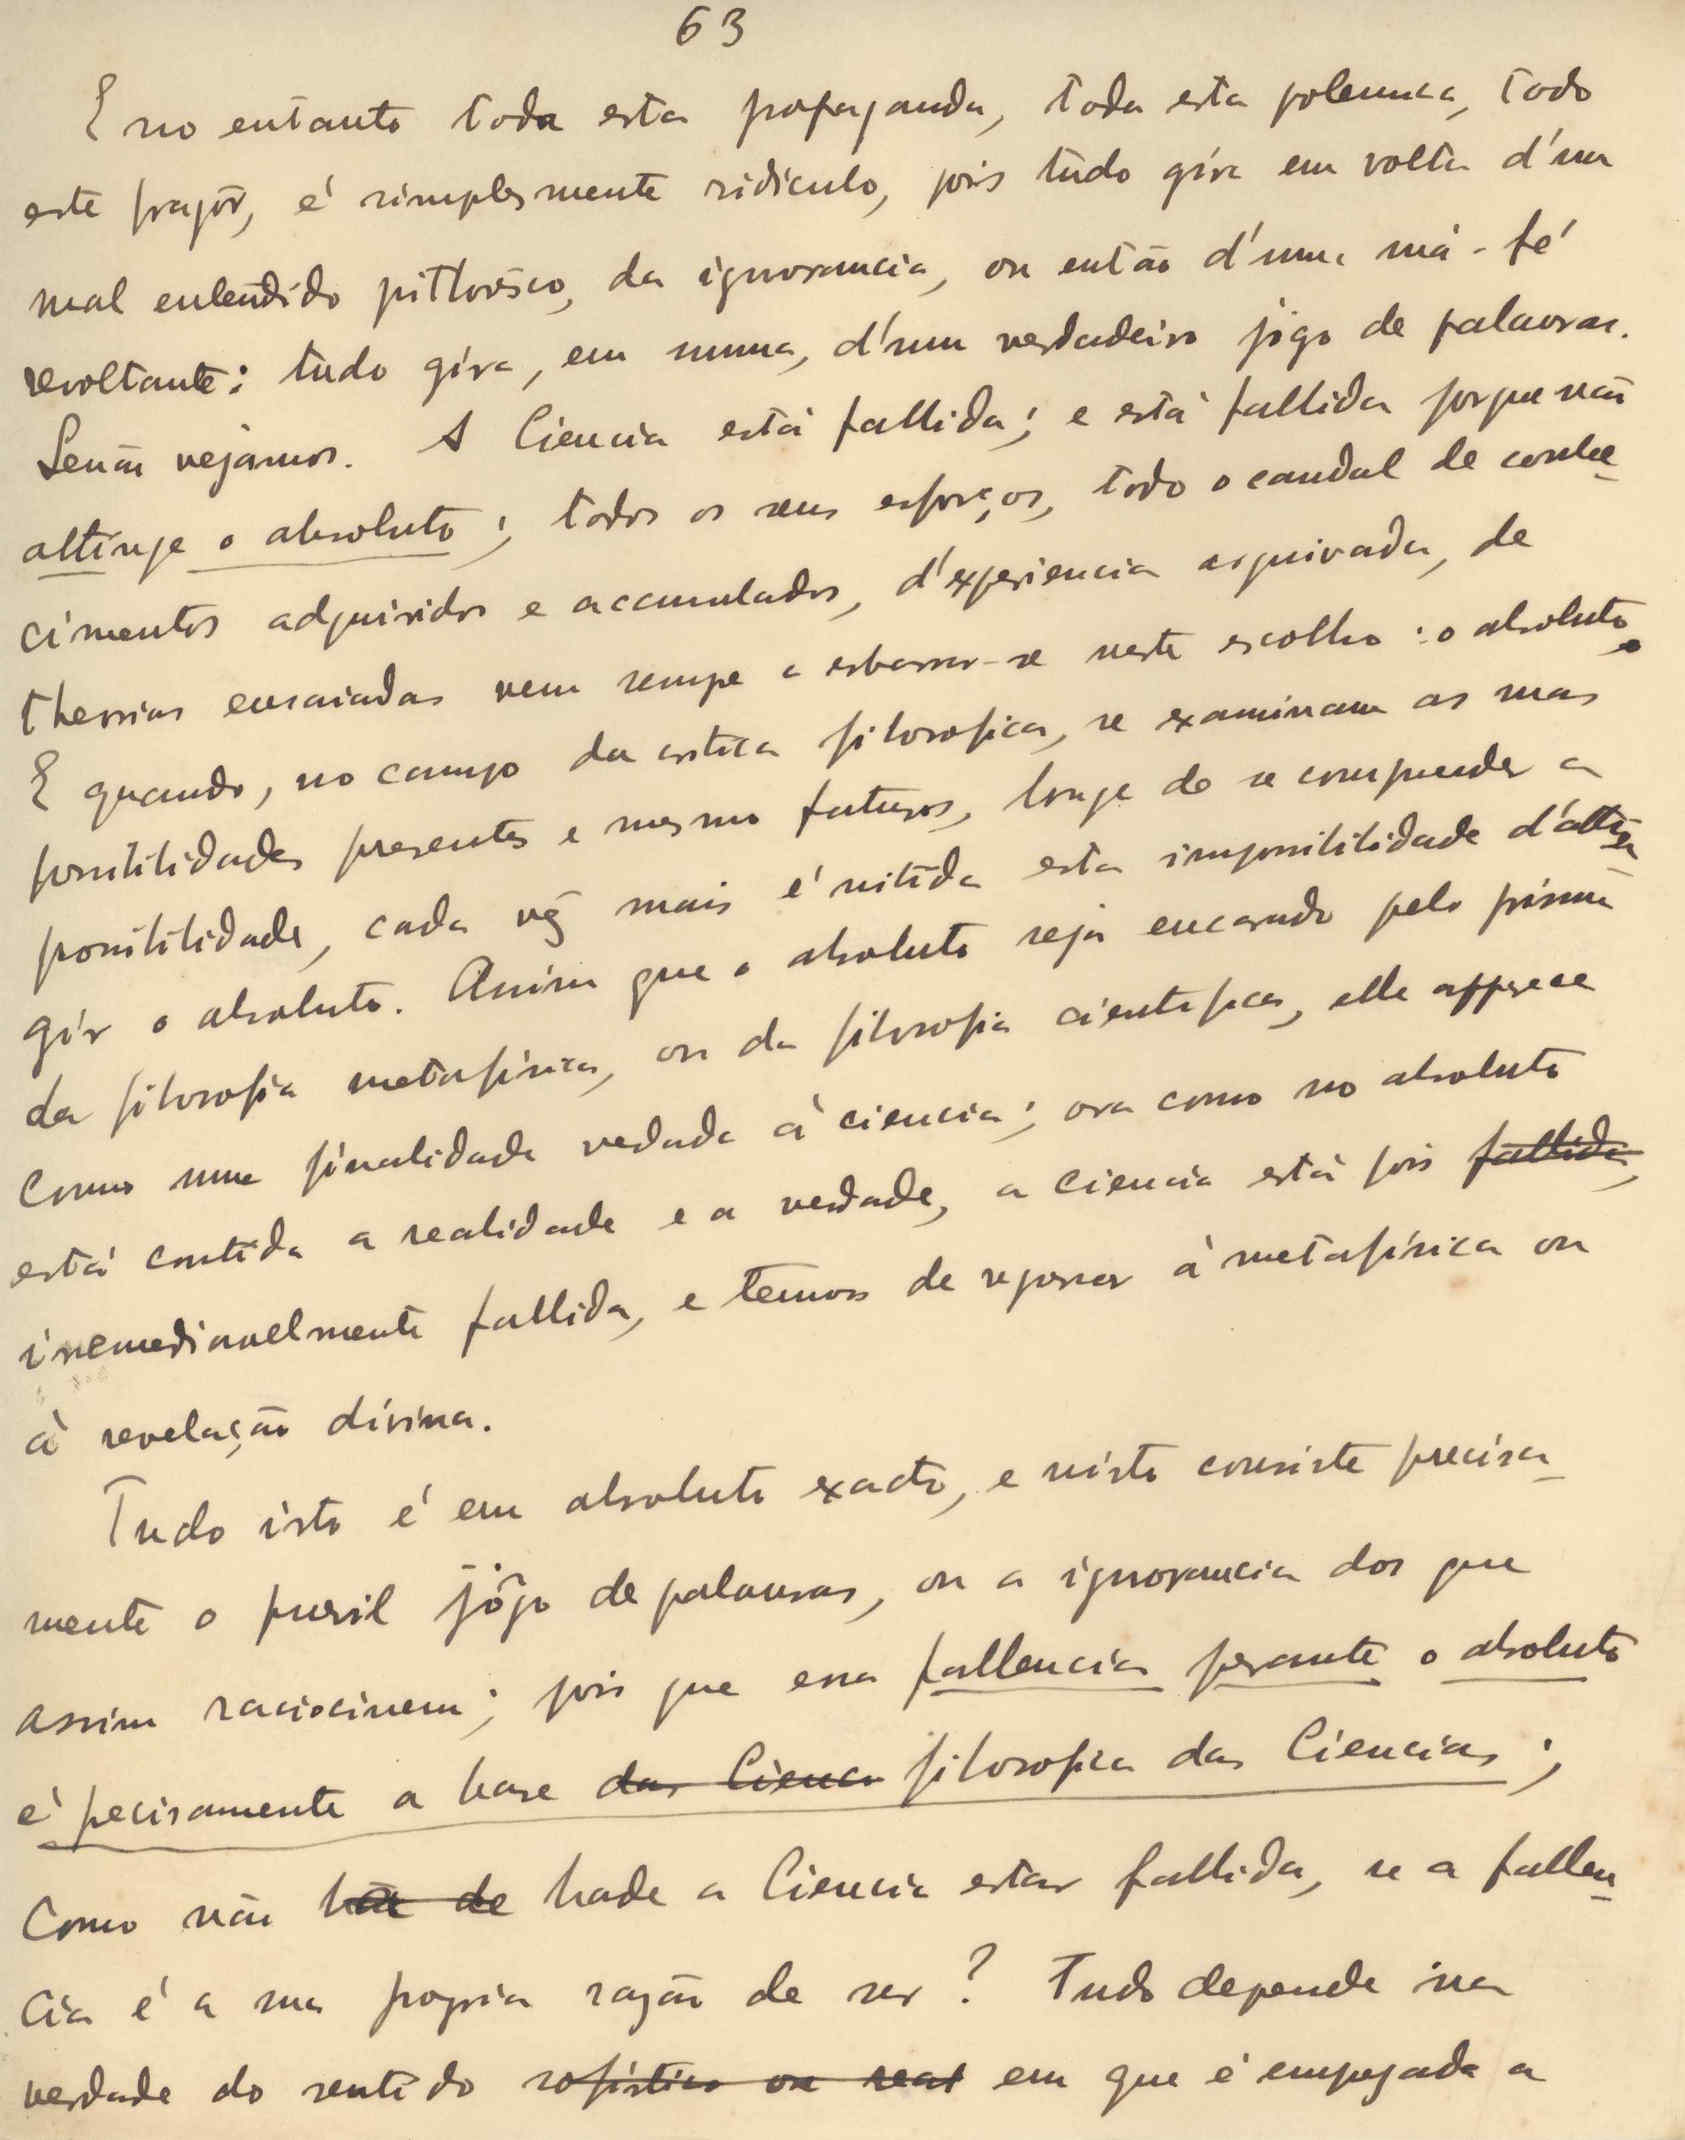 63
E no entanto toda esta propaganda, toda esta polemica, todo
este fragôr, é simplesmente ridiculo, pois tudo gira em volta d'um
mal entendido pittoresco, da ignorancia, ou então d'uma má-fé
revoltante: tudo gira, em summa, d'um verdadeiro jogo de palavras.
Senão vejamos. A Ciencia está fallida; e está fallida porque não
attinge o absoluto; todos os seus esforços, todo o caudal de conhe-
cimentos adquiridos e accumulados, d'experiencia arquivada, de
theorias ensaiadas vem sempre a esbarrar-se neste escolho: o absoluto.
E quando, no campo da critica filosofica, se examinam as suas
possibilidades presentes e mesmo futuras, longe de se comprender a
possibilidade, cada vez mais é nitida esta impossibilidade d'attin-
gir o absoluto. Assim que o absoluto seja encarado pelo prisma
da filosofia metafisica, ou da filosofia cientifica, elle apparece
como uma finalidade vedada á ciencia; ora como no absoluto
está contida a realidade e a verdade, a ciencia está pois fallida,
irremediavelmente fallida, e temos de regressar á metafisica ou
á revelação divina.
Tudo isto é em absoluto exacto, e nisto consiste precisa-
mente o pueril jôgo de palavras, ou a ignorancia dos que
assim raciocinem; pois que essa fallencia perante o absoluto
é precisamente a base das Cienca filosofica das Ciencias;
Como não há de hade a Ciencia estar fallida, se a fallen-
cia é a sua propria razão de ser? Tudo depende na
verdade do sentido sofistico ou real em que é empregada a